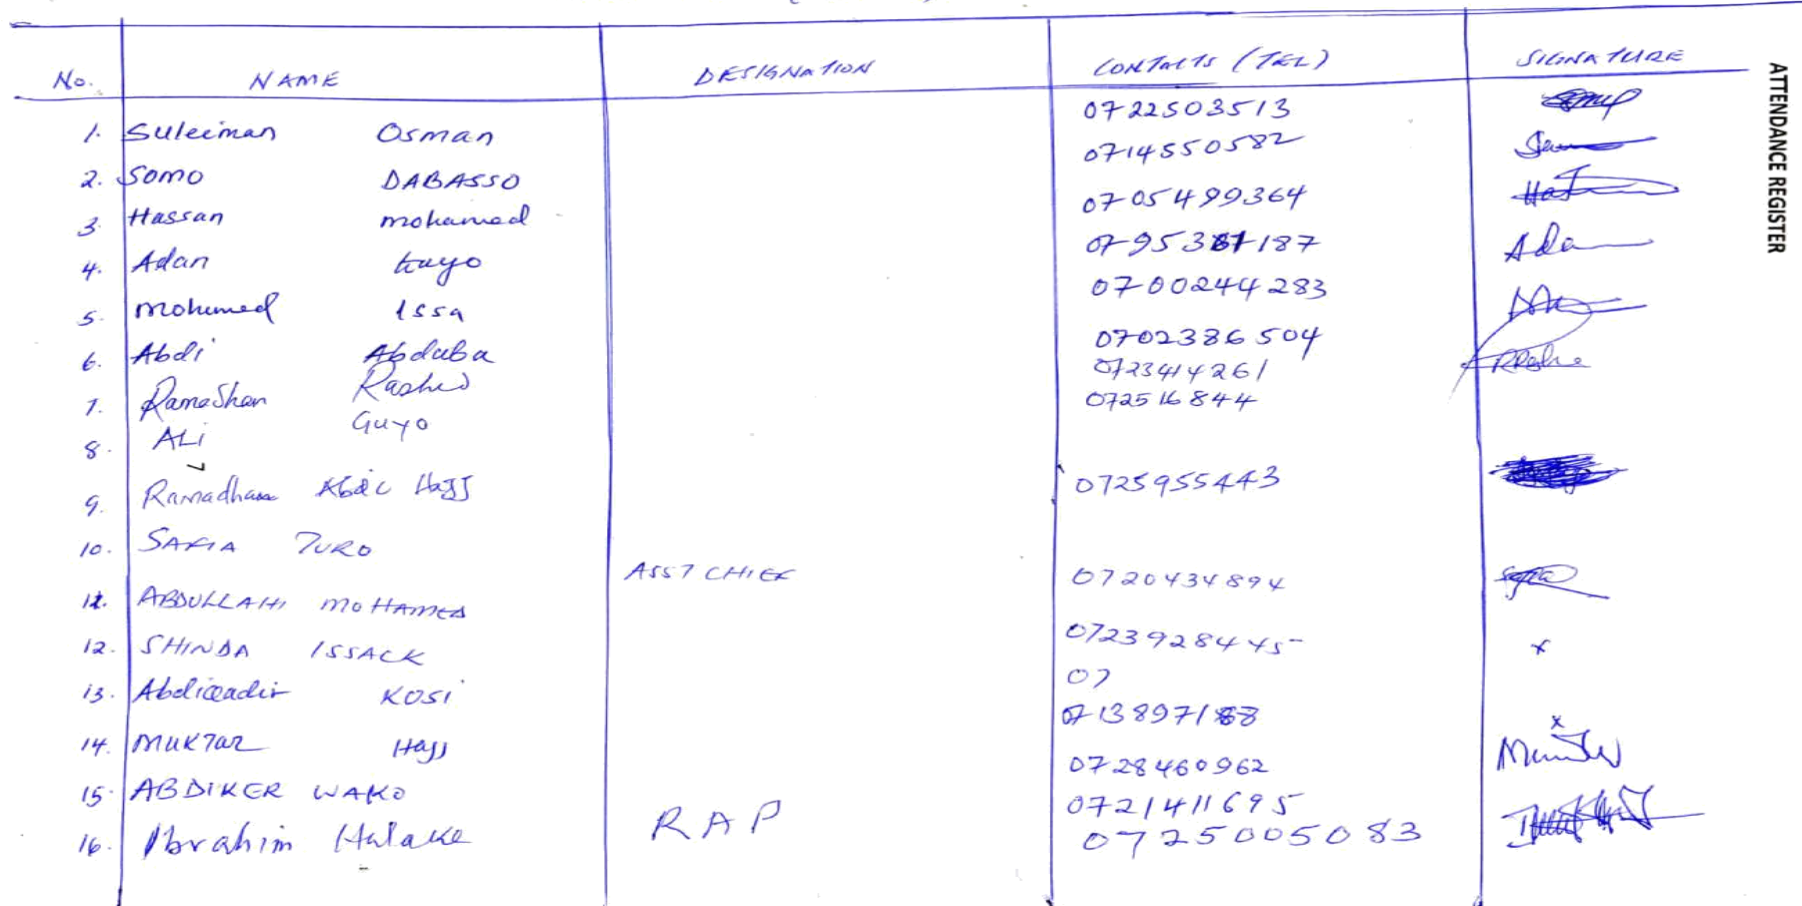 No. NAME DESIGNATION CONTACTS (TEL) SIGNATURE
1. Suleiman Osman 0722503513
2. Somo DABASSO 0714550582
3. Hassan mohamed 0705499364
4. Adan Guyo 07953 187 Ada
5. mohumed Issa 0700244283
6. Abdi Abduba 0702386504
7. Ramadhan Rashid 0723414261
8. ALi Guyo 072516844
9. Ramadhan Abdi Hajj 0725955443
10. SAFIA TURO
11. ABDULLAHI MOHAMED ASST CHIEF 0720434894
12. SHINDA ISSACK 0723928445 x
13. Abdiqadir KOSI 07
14. MUKTAR Hajj 07138971 x
15. ABDIKER WAKO 0728460962
0721411695
16. Ibrahim Halake RAP 0725005083
ATTENDANCE REGISTER